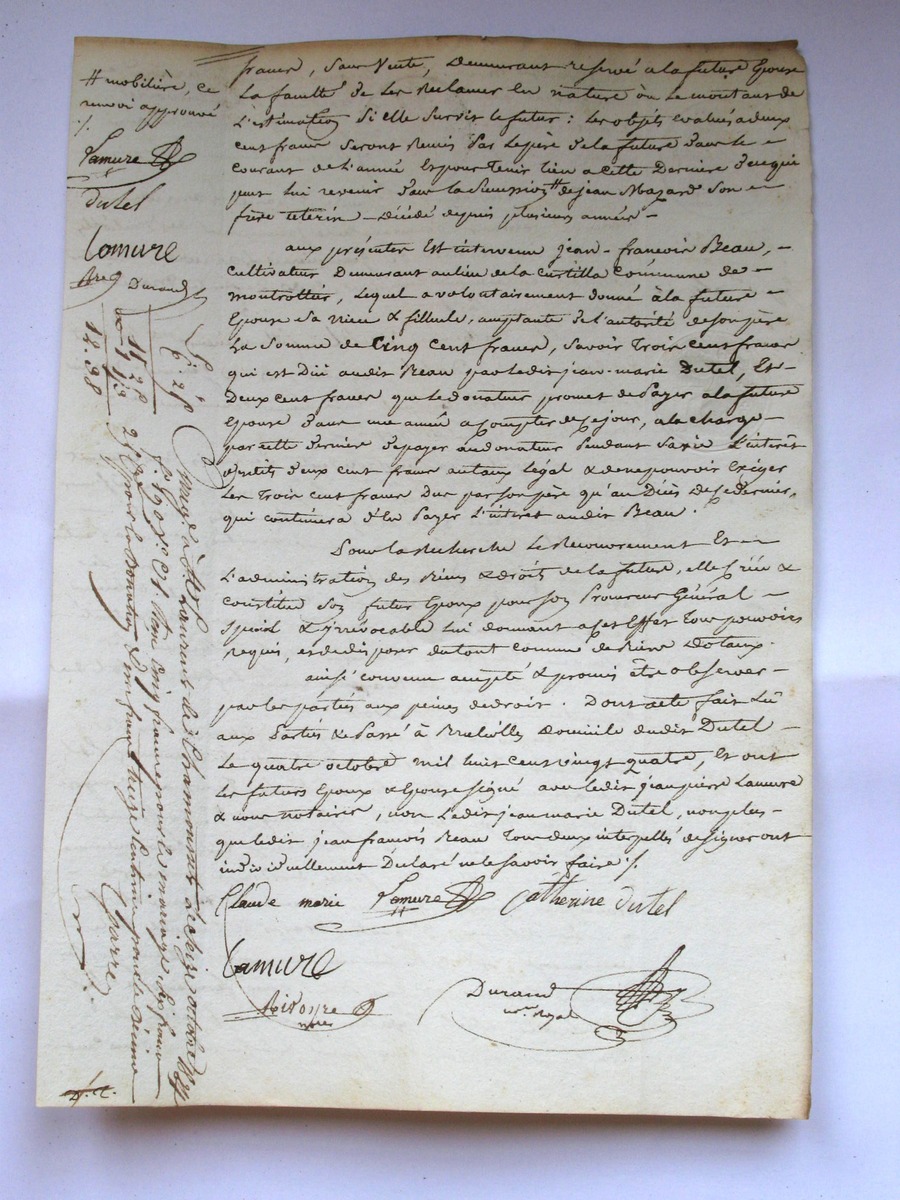 # mobilière, ce
renvoi approuvé
Lamure
dutel
Lamure
Durand
francs, Sans Vente, Demeurant reservé a la future Epouse
La faculté de Les Reclamer En nature ou Le montant de
L'estimation Si elle survit le futur : Les objets Evalués a deux
cent francs Seront Remis par Le père de la future dans Le
courant de L'année Et pour Tenir Lieu a Cette Derniere de ce qui
peut lui revenir dans la Succession # de jean Mazard Son
frère uterin Décédé depuis plusieurs années
aux présentes Est intervenu jean-francois Beau,
Cultivateur Demeurant au lieu de la Curtilla Commune de
montrottier, Lequel a volontairement donné à la future
Epouse Sa Niece & filleule, acceptante de l'autorité de son père
La Somme de Cinq Cent francs, Savoir Trois cent francs
qui est Dûe audit Beau par ledit jean-marie Dutel, Et
Deux cent francs que Le donateur promet de Payer a la future
Epouse dans une année a Compter de ce jour, a la charge
par cette derniere de payer au donateur Pendant Sa vie L'intérêt
desdits deux cent francs au taux Légal & de ne pouvoir Exiger
Les Trois cent francs Dus par son père qu'au Décès de ce dernier,
qui continuera d'En Payer L'interet audit Beau.
Pour la Recherche Le Recouvrement Et
L'administration des Biens & droits de la future, elle Crée &
Constitue Son futur Epoux pour Son Procureur Général
Special & irrévocable Lui donnant a cet Effet Tous pouvoirs
requis, et de disposer du tout Comme de Biens dotaux.
ainsi convenu accepté & promis être observer
par les parties aux peines de droit. Dont acte fait Lû
aux Parties & Passé à Domicile dudit Dutel
Le quatre octobre mil huit cent vingt quatre, Et ont
Les futurs Epoux & Epouse signé avec ledit jean pierre Lamure
& nous notaires, non Ledit jean marie Dutel, non plus
que ledit jean francois Beau Tous deux interpellés de signer ont
individuellement Declaré ne le Savoir faire ./.
Claude marie Lamure Catherine dutel
Lamure
Durand
nre Royal
St Laurent de Chamousset le seize octobre
cinq francs pour le mariage dix francs
pour la donation Charre